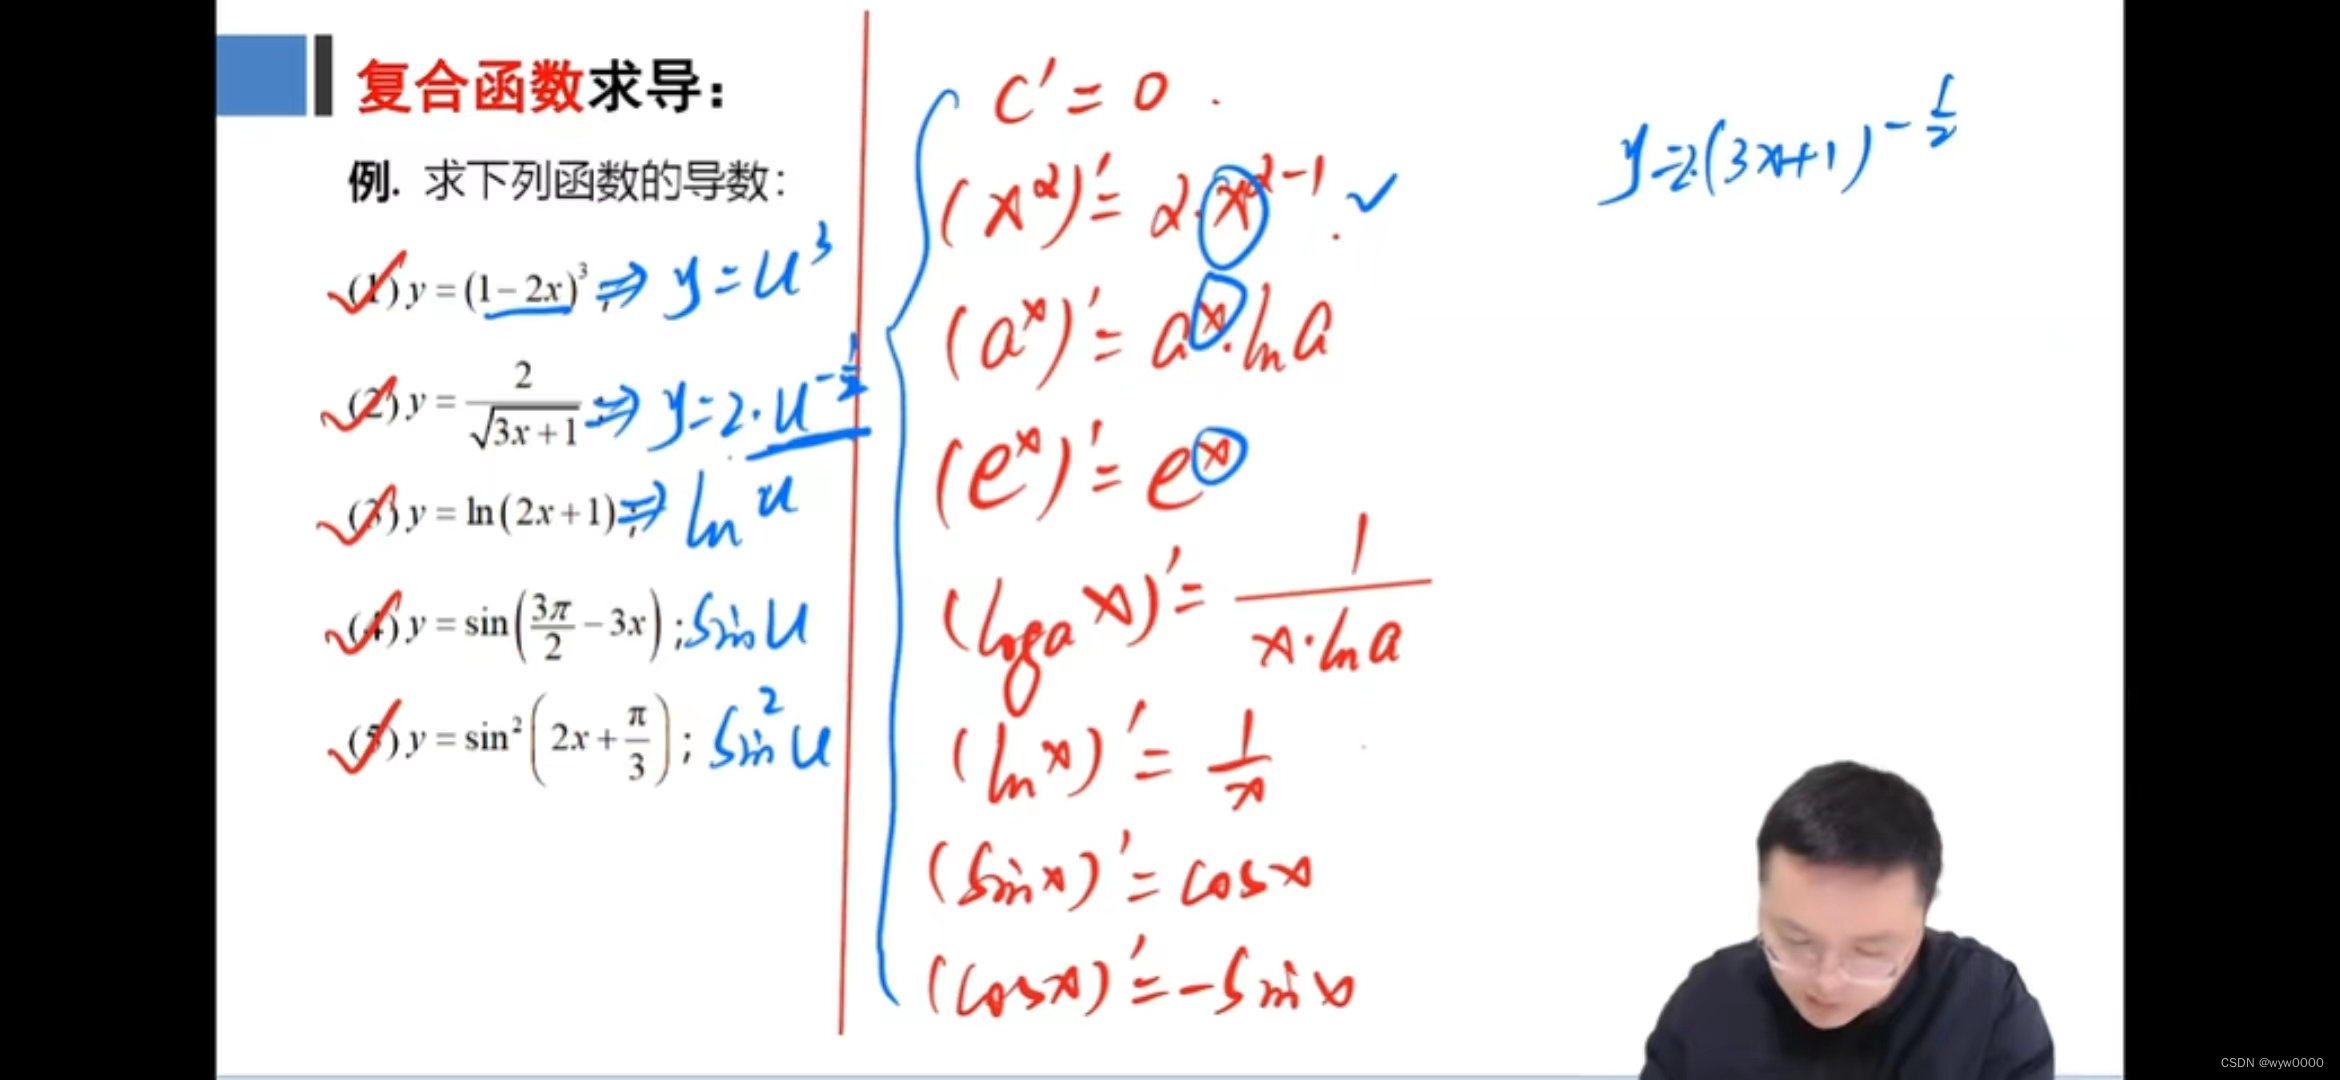 复合函数求导：
例. 求下列函数的导数：
(1) y = (1 − 2x)³ ; ⇒ y = u³
(2) y = 2/√(3x+1) ; ⇒ y = 2·u^(-1/2)
(3) y = ln(2x+1) ; ⇒ ln u
(4) y = sin(3π/2 − 3x) ; sin u
(5) y = sin²(2x + π/3) ; sin² u
C' = 0
(x^α)' = α·x^(α-1)
(a^x)' = a^x·ln a
(e^x)' = e^x
(log_a x)' = 1/(x·ln a)
(ln x)' = 1/x
(sin x)' = cos x
(cos x)' = -sin x
y = 2·(3x+1)^(-1/2)
CSDN @wyw0000